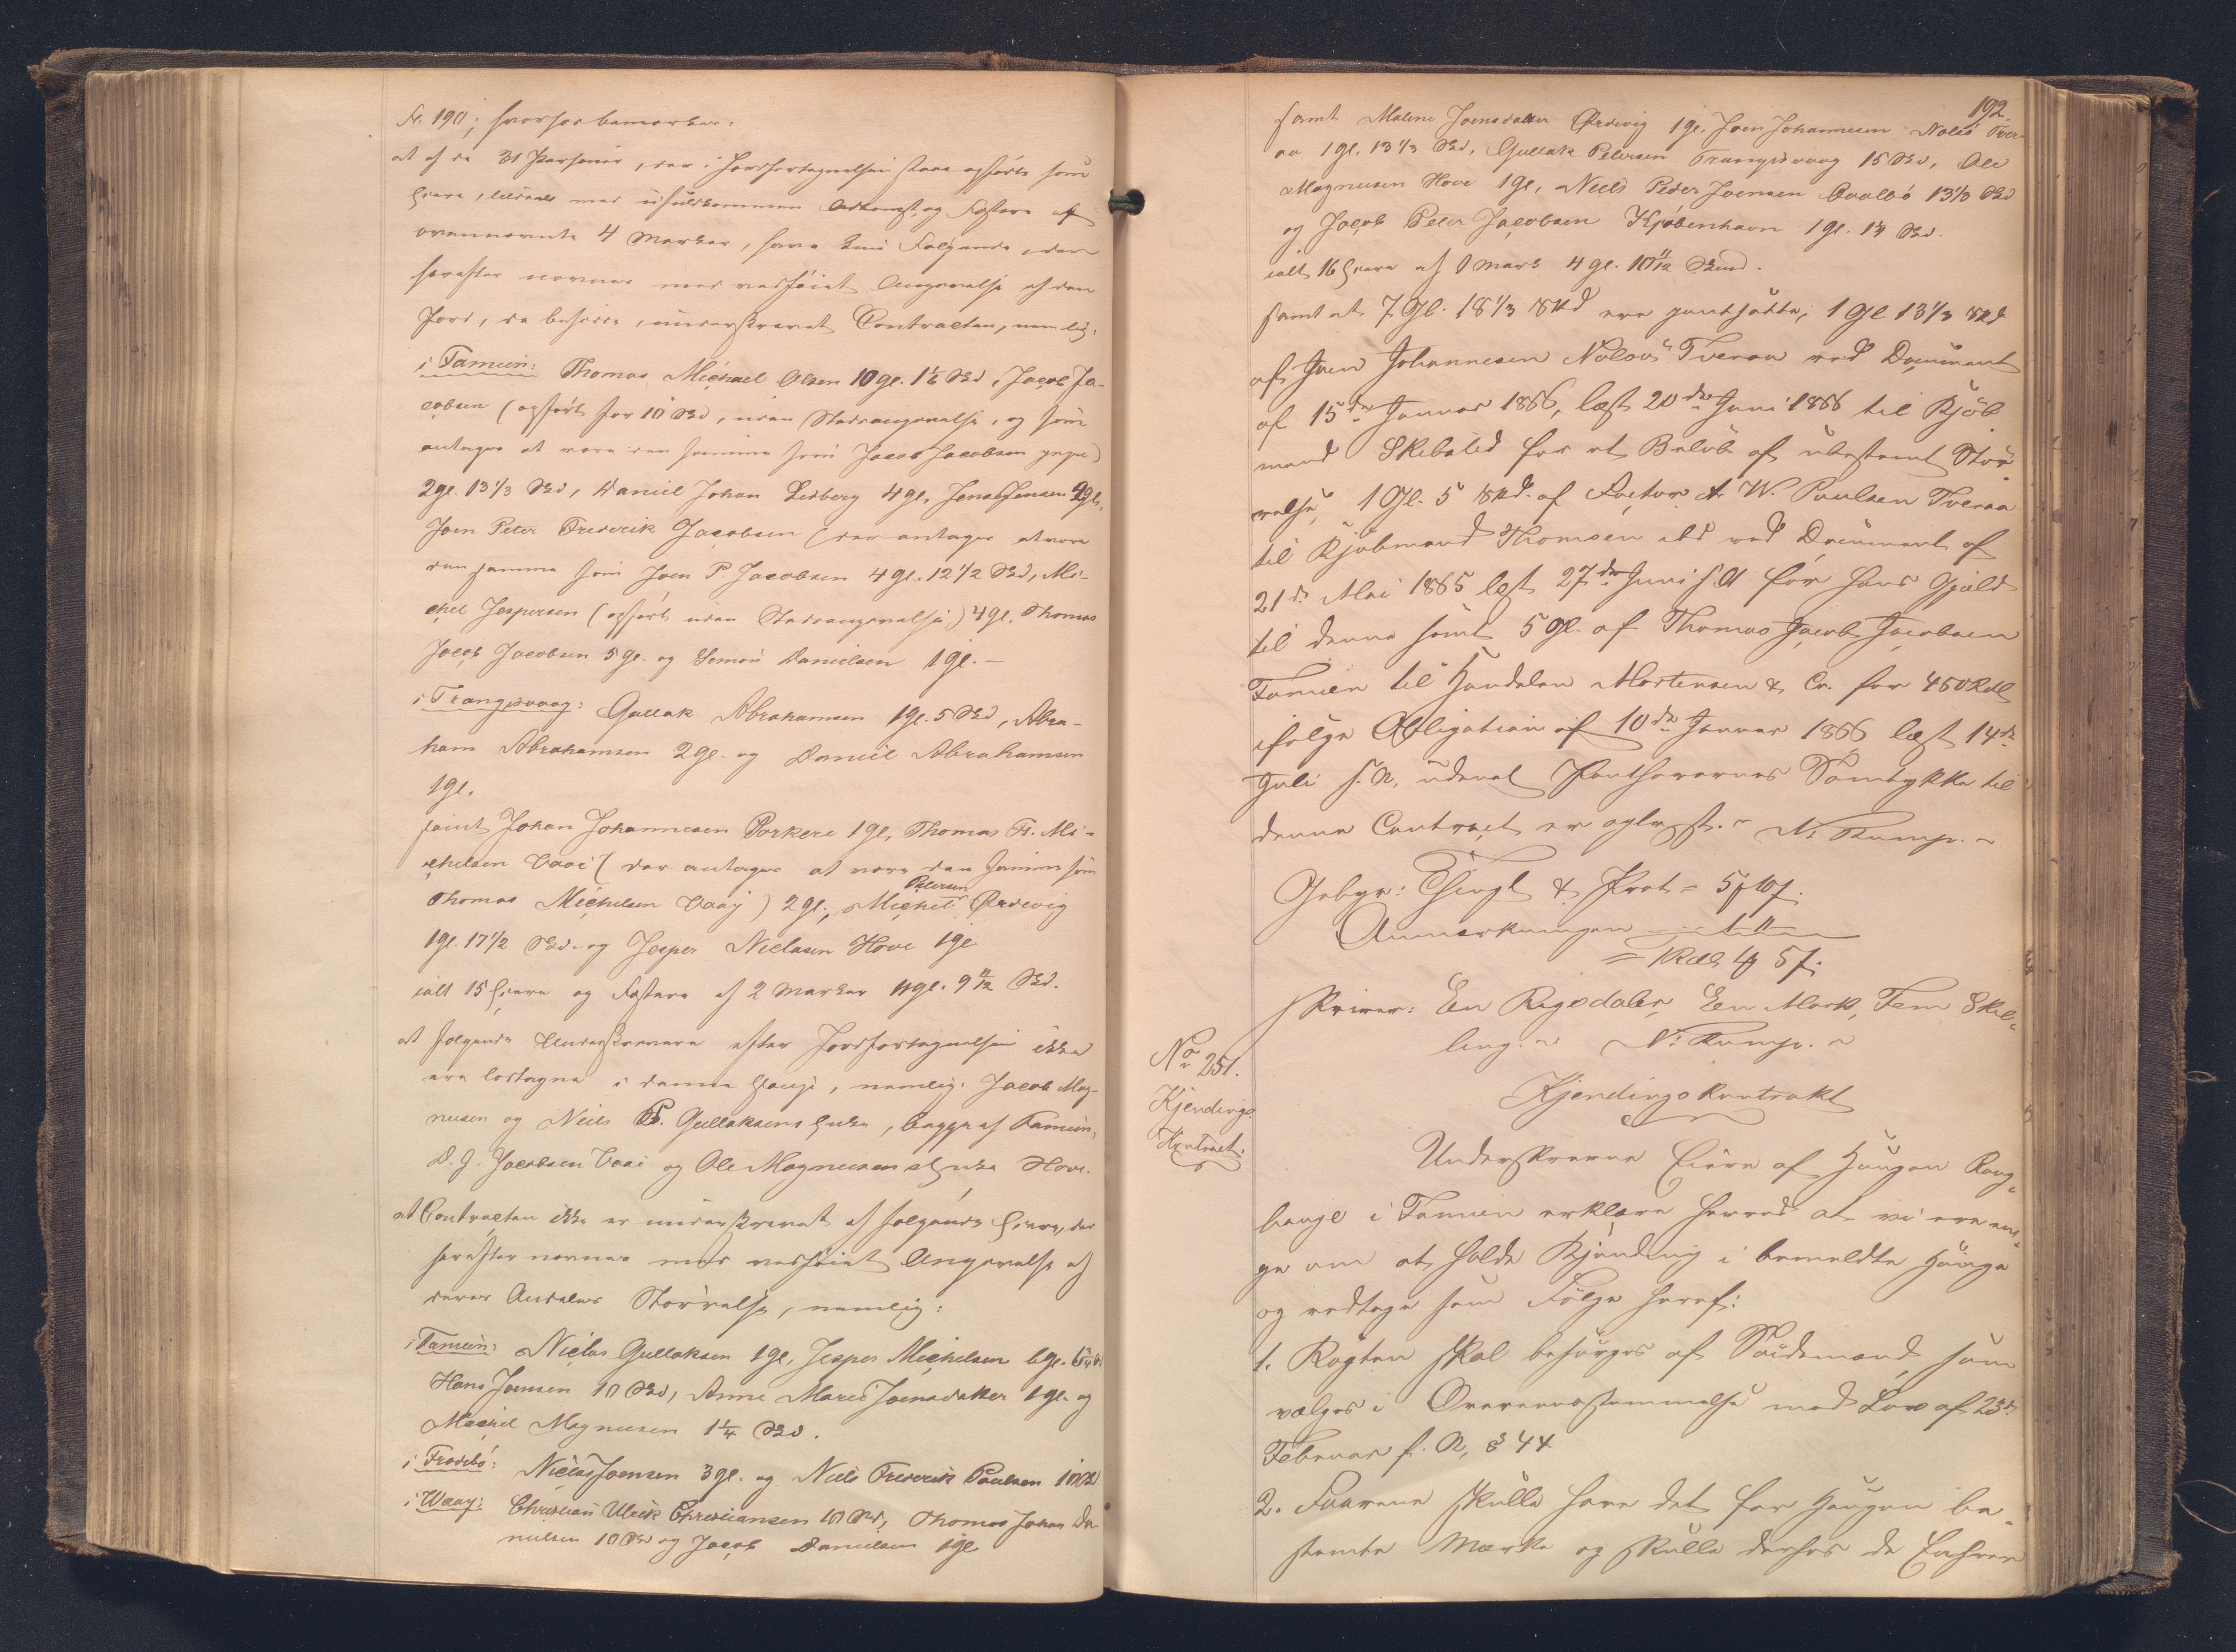 Fr. 190; hvorhos bemærkes:
at af de 31 Personer, der i Jordfortegnelsen staae opførte som
Eiere, tildeels med ufuldkommen Adkomst, og Fæstere af
ovennævnte 4 Marker, have kun Følgende, der
herefter nævnes med vedføiet Angivelse af den
Jord, de besidde, underskrevet Contracten, nemlig:
i Famien: Thomas Michael Olsen 10 gl. 1 1/6 Skd, Jacob Ja-
cobsen (opført for 10 Skd, uden Stedsangivelse, og som
antages at være den samme som Jacob Jacobsen yngre)
2 gl. 13 1/3 Skd, Daniel Johan Lidberg 4 gl, Jens Jensen 2 gl,
Joen Peter Frederik Jacobsen (der antages at være
den samme som Joen P. Jacobsen 4 gl. 12 1/2 Skd, Mi-
chel Jespersen (opført uden Stedsangivelse) 4 gl, Thomas
Jacob Jacobsen 5 gl. og Simon Danielsen 1 gl. –
i Trangisvaag: Gullak Abrahamsen 1 gl. 5 Skd, Abra-
ham Abrahamsen 2 gl. og Daniel Abrahamsen
1 gl.
samt Johan Johannesen Porkere 1 gl, Thomas Fr. Mi-
chelsen Vaai (der antages at være den samme som
Thomas Michelsen Vaag) 2 gl; Michel Petersen Ørdevig
1 gl. 17 1/2 Skd. og Jesper Niclasen Hove 1 gl
ialt 15 Eiere og Fæstere af 2 Marker 11 gl. 9 11/12 Skd.
at følgende Underskrevere efter Jordfortegnelsen ikke
ere lodtagne i denne Hauge, nemlig: Jacob Mag-
nusen og Niels P. Gullaksens Enke, begge af Famien,
D. J. Jacobsen Vaai og Ole Magnusens Enke Hove.
at Contracten ikke er underskrevet af følgende Eiere, der
herefter nævnes med vedføiet Angivelse af
deres Andeles Størrelse, nemlig:
i Famien: Niclas Gullaksen 1 gl, Jesper Michelsen 6 gl.
Hans Joensen 10 Skd, Anne Marie Joensdatter 1 gl. og
Michel Magnusen 1 1/4 Skd.
i Frodebø: Niclas Joensen 3 gl. og Niels Frederik Poulsen 10 Skd
i Waag: Christian Ulrik Christiansen 10 Skd, Thomas Johan Da-
nielsen 10 Skd og Jacob Danielsen 1 gl
192.
samt Malene Joensdatter Ørdevig 1 gl. Joen Johannesen Nolsø Tver-
aa 1 gl. 13 1/3 Skd, Gullak Petersen Trangisvaag 15 Skd, Ole
Magnusen Hove 1 gl, Niels Peder Joensen Qvalbø 13 1/3 Skd
og Jacob Peter Jacobsen Kjøbenhavn 1 gl. 14 Skd.
ialt 16 Eiere af 1 Mark 4 gl. 10 11/12 Skind.
samt at 7 Gl. 18 1/3 Skd ere pantsatte; 1 Gl 13 1/3 Skd
af Joen Johannesen Nolsøe Tveraa ved Document
af 15de Januar 1866, læst 20de Juni 1866 til Kjøb
mand Skibsted for et Beløb af ubestemt Stør
relse, 1 Gl. 5 Skd. af Factor A. W. Poulsen Tveraa
til Kjøbmand Thomsen ibd ved Document af
21d. Mai 1865 læst 27de Juni s. A for hans Gjæld
til denne samt 5 Gl. af Thomas Jacob Jacobsen
Famien til Handelen Mortensen & Co. for 450 Rdl
ifølge Obligation af 10de Januar 1866 læst 14de
Juli s. A. uden at Panthavernes Samtykke til
denne Contract er oplyst. – N. Kamp. –
Gebyr: Thingl & Prot = 5 10
Anmærkningen 1 "
= 1 Rdl 1 5
skriver: Een Rigsdaler, Een Mark, Fem Skil-
ling. – N. Kamp. –
No 251.
Kjendings
Kontract.
Kjendingskontrakt
Underskrevne Eiere af Haugen Rang-
hauge i Famien erklære herved at vi ere eni-
ge om at holde Kjending i bemeldte Hauge
og vedtage som Følge heraf:
1. Røgten skal besørges af Saudemænd, som
vælges i Overensstemmelse med Lov af 23de
Februar f. A, § 4 4.
2. Faarene skulle have det for Haugen be-
stemte Mærke og skulle derhos de Enhver